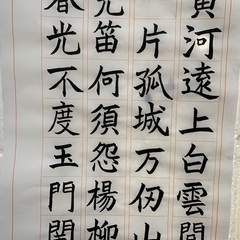 黄河遠上白雲間
片孤城万仞山
羌笛何須怨楊柳
春光不度玉門関